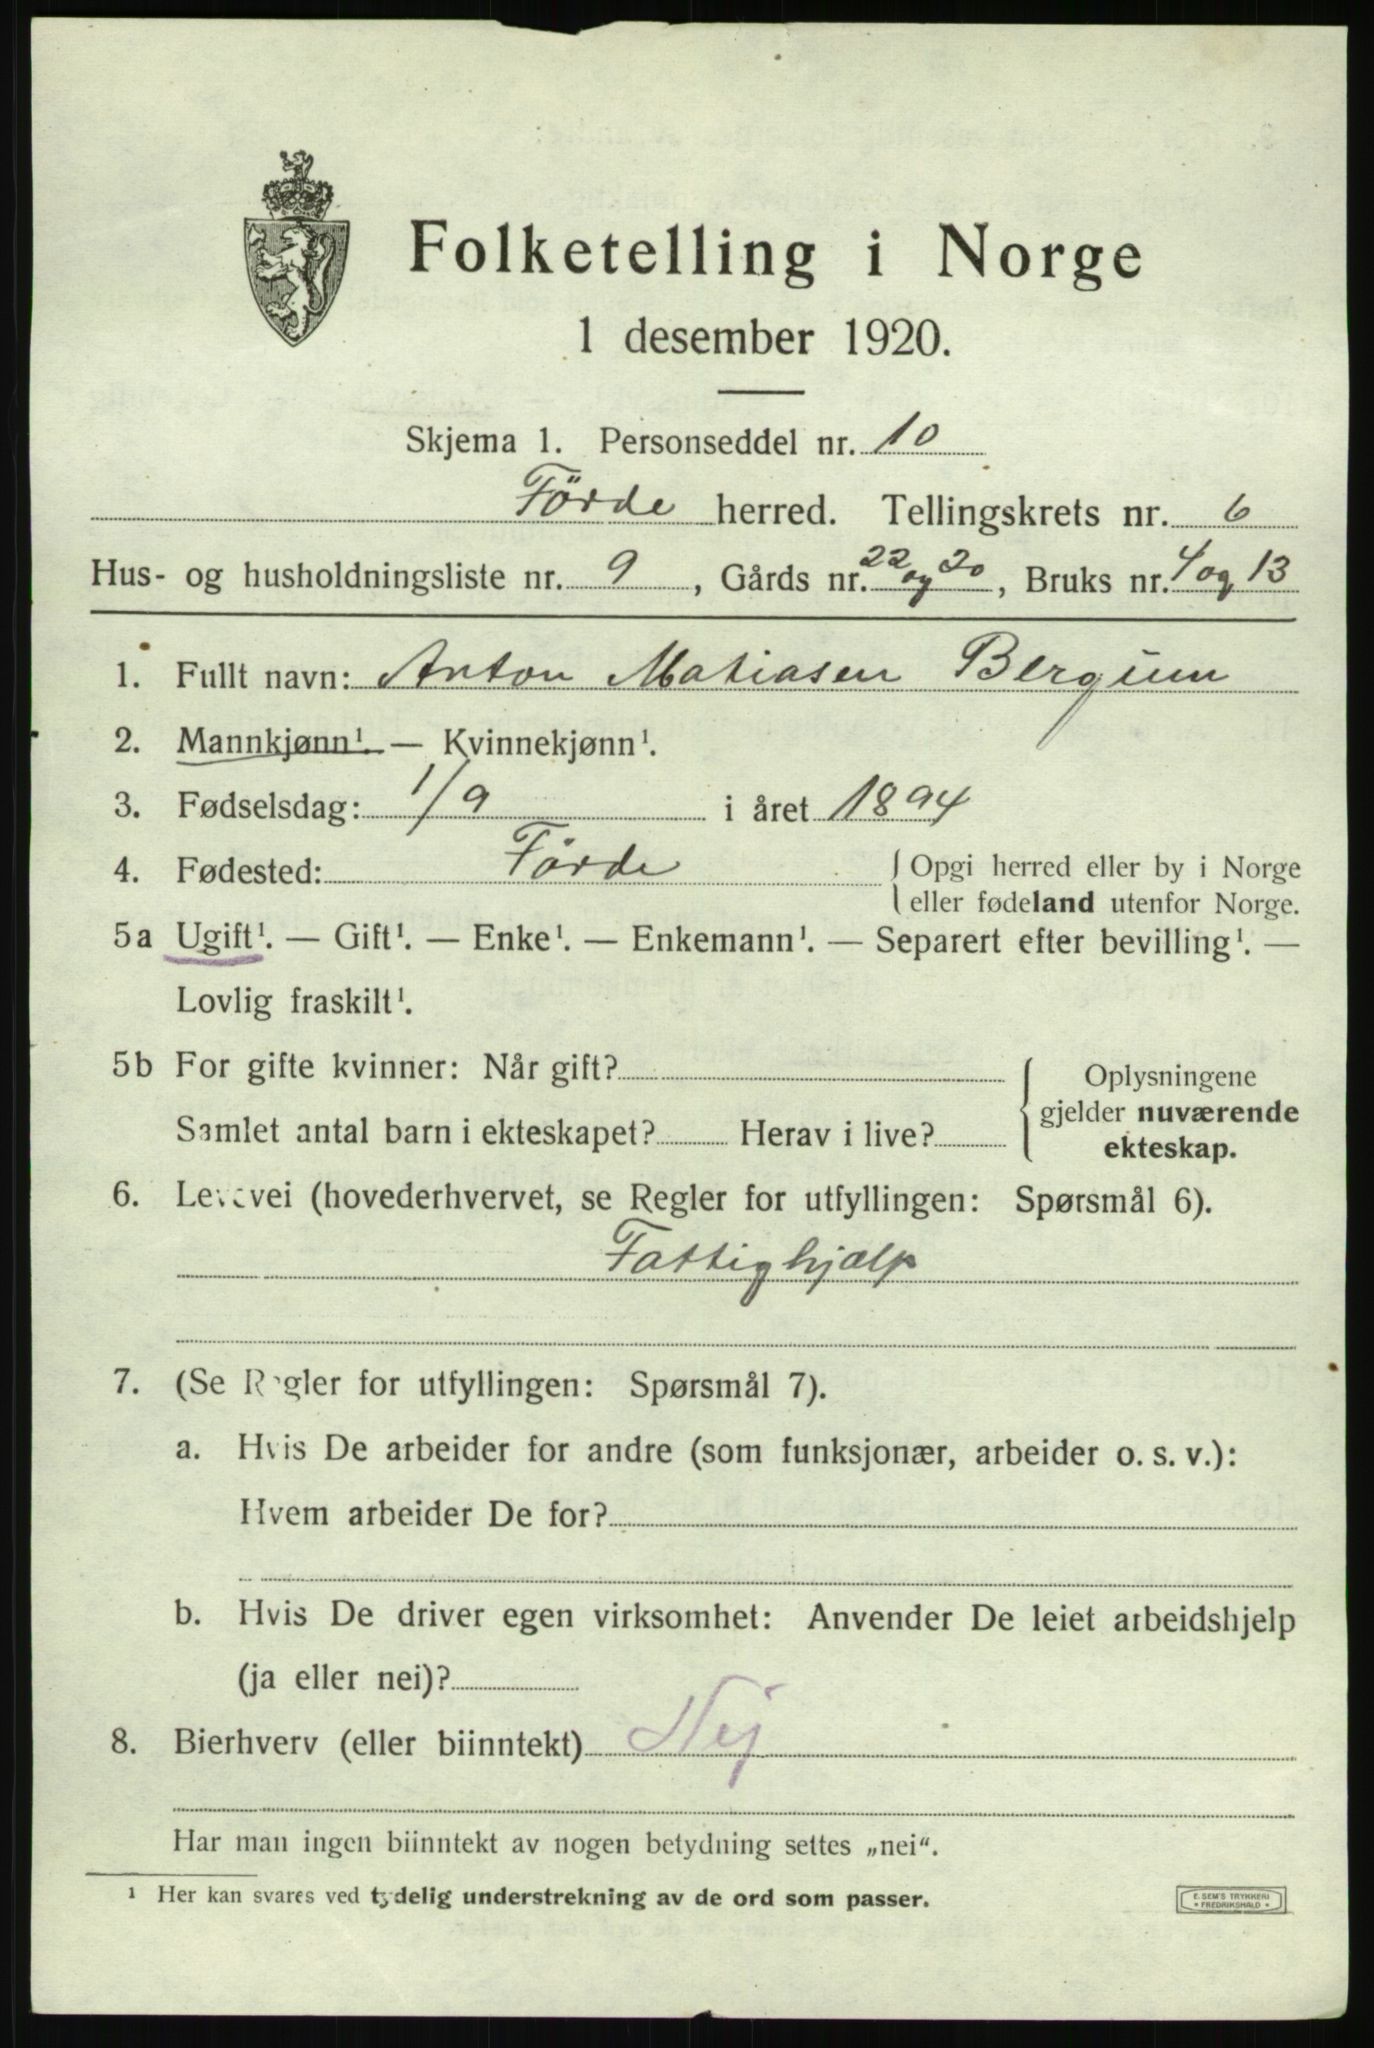 Folketelling i Norge
1 desember 1920.
Skjema 1. Personseddel nr. 10
Förde herred. Tellingskrets nr. 6
Hus- og husholdningsliste nr. 9, Gårds nr. 22 og 20, Bruks nr. 4 og 13
1. Fullt navn: Anton Matiasen Bergum
2. Mannkjønn¹. — Kvinnekjønn¹.
3. Fødselsdag: 1/9 i året 1894
4. Fødested: Förde { Opgi herred eller by i Norge
eller fødeland utenfor Norge.
5a Ugift¹. — Gift¹. — Enke¹. — Enkemann¹. — Separert efter bevilling¹. —
Lovlig fraskilt¹.
5b For gifte kvinner: Når gift? { Oplysningene
gjelder nuværende
Samlet antal barn i ekteskapet? Herav i live?
ekteskap.
6. Levevei (hovederhvervet, se Regler for utfyllingen: Spørsmål 6).
Fattighjælp
7. (Se Regler for utfyllingen: Spørsmål 7).
a. Hvis De arbeider for andre (som funksjonær, arbeider o. s. v.):
Hvem arbeider De for?
b. Hvis De driver egen virksomhet: Anvender De leiet arbeidshjelp
(ja eller nei)?
8. Bierhverv (eller biinntekt) Nej
Har man ingen biinntekt av nogen betydning settes „nei".
¹ Her kan svares ved tydelig understrekning av de ord som passer.
E. SEM'S TRYKKERI
* FREDRIKSHALD *